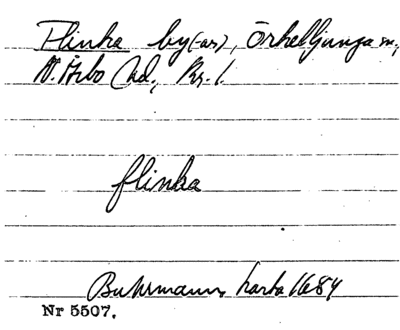 Flinka by(-ar), Örkelljunga sn,
N. Åsbo hd, Kr. l.
flinka
Buhrmann, karta 1684
Nr 5507.